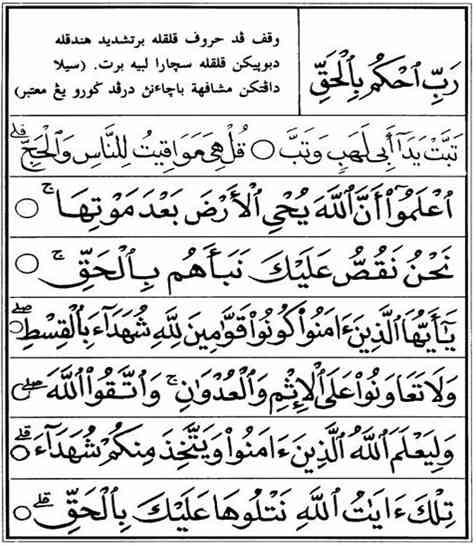 رَبِّ ٱحْكُم بِٱلْحَقِّ
وقف ڤد حروف قلقله برتشديد هندقله
دبوڽيكن قلقله سچارا لبيه برت. (سيلا
داڤتكن مشافهة باچاءن درڤد ݢورو يڠ معتبر)
تَبَّتْ يَدَآ أَبِى لَهَبٍ وَتَبَّ ○ قُلْ هِىَ مَوَٰقِيتُ لِلنَّاسِ وَٱلْحَجِّ ۗ
ٱعْلَمُوٓا۟ أَنَّ ٱللَّهَ يُحْىِ ٱلْأَرْضَ بَعْدَ مَوْتِهَا ۚ ○
نَحْنُ نَقُصُّ عَلَيْكَ نَبَأَهُم بِٱلْحَقِّ ۚ ○
يَٰٓأَيُّهَا ٱلَّذِينَ ءَامَنُوا۟ كُونُوا۟ قَوَّٰمِينَ لِلَّهِ شُهَدَآءَ بِٱلْقِسْطِ ۖ ○
وَلَا تَعَاوَنُوا۟ عَلَى ٱلْإِثْمِ وَٱلْعُدْوَٰنِ ۚ وَٱتَّقُوا۟ ٱللَّهَ ۖ ○
وَلِيَعْلَمَ ٱللَّهُ ٱلَّذِينَ ءَامَنُوا۟ وَيَتَّخِذَ مِنكُمْ شُهَدَآءَ ۗ ○
تِلْكَ ءَايَٰتُ ٱللَّهِ نَتْلُوهَا عَلَيْكَ بِٱلْحَقِّ ۗ ○